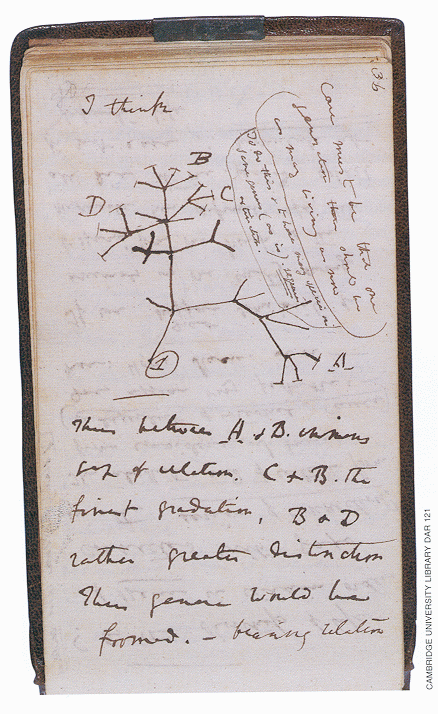 36
I think
Case must be that one
generation then should be
as many living as now
To do this & to have many species in
same genus (as is) requires
extinction.
B
C
D
A
1
Thus between A & B. immense
gap of relation. C & B. the
finest gradation, B & D
rather greater distinction
Thus genera would be
formed. – bearing relation
CAMBRIDGE UNIVERSITY LIBRARY DAR 121